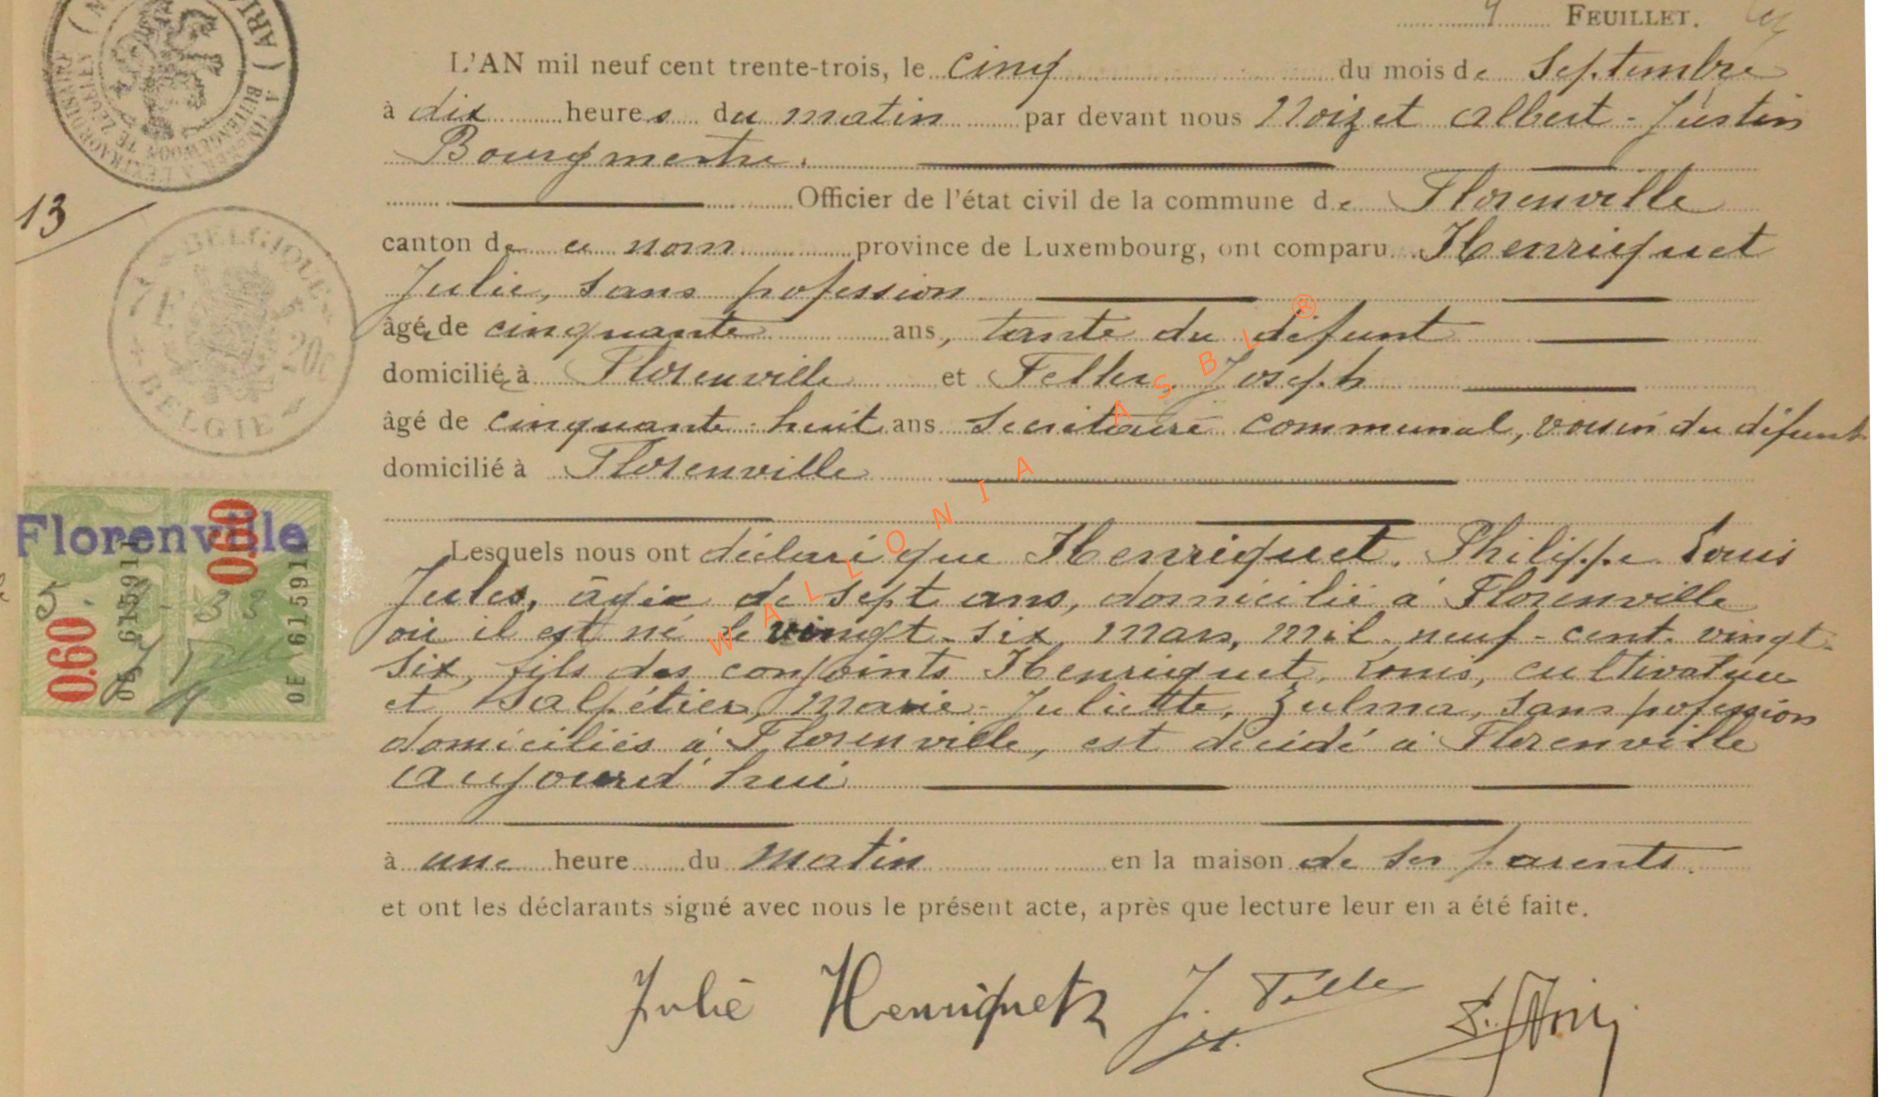 9 FEUILLET.
L'AN mil neuf cent trente-trois, le cinq du mois de Septembre
à dix heures du matin par devant nous Noizet Albert-Justin
Bourgmestre.
Officier de l'état civil de la commune de Florenville
13
canton de ce nom province de Luxembourg, ont comparu Henriquet
Julie, sans pofession
âgée de cinquante ans, tante du défunt
domiciliée à Florenville et Feller, Joseph
âgé de cinquante-huit ans Secrétaire communal, voisin du défunt
domicilié à Florenville
BELGIQUE
BELGIE
Florenville
0.60 0.60
OE 615911
Lesquels nous ont déclaré que Henriquet, Philippe Louis
Jules, âgé de sept ans, domicilié à Florenville
où il est né le vingt-six, mars, mil-neuf-cent-vingt-
six, fils des conjoints Henriquet, Louis, cultivateur
et Salpétier, Marie-Juliette, Zulma, sans pofession
domiciliés à Florenville, est décédé à Florenville
aujourd'hui
à une heure du matin en la maison de ses parents.
et ont les déclarants signé avec nous le présent acte, après que lecture leur en a été faite.
Julie Henriquet J. Feller
WALLONIA ASBL ®